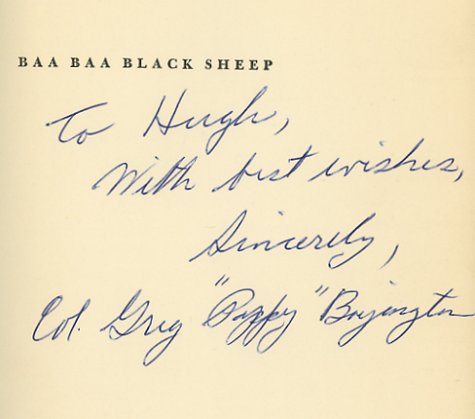 BAA BAA BLACK SHEEP
To Hugh,
With best wishes,
Sincerely,
Col. Greg "Pappy" Boyington